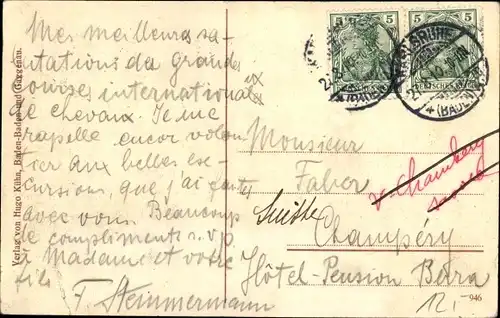 Mes meilleures sa-
lutations da grandes
courses internationales
de chevaux. Je me
rapelle encor volon-
tier aux belles ex-
cursions, que j'ai faites
avec vous. Beaucoup
de compliments s.v.p.
à Madame et votre
fils
F. Steinmermann
Monsieur
Faber
Suisse
Champéry
Hôtel-Pension Berra
12.-
946
5 5
5 5
KARLSRUHE
(BADEN)
DEUTSCHES REICH
Verlag von Hugo Kühn, Baden-Baden und Gaggenau.